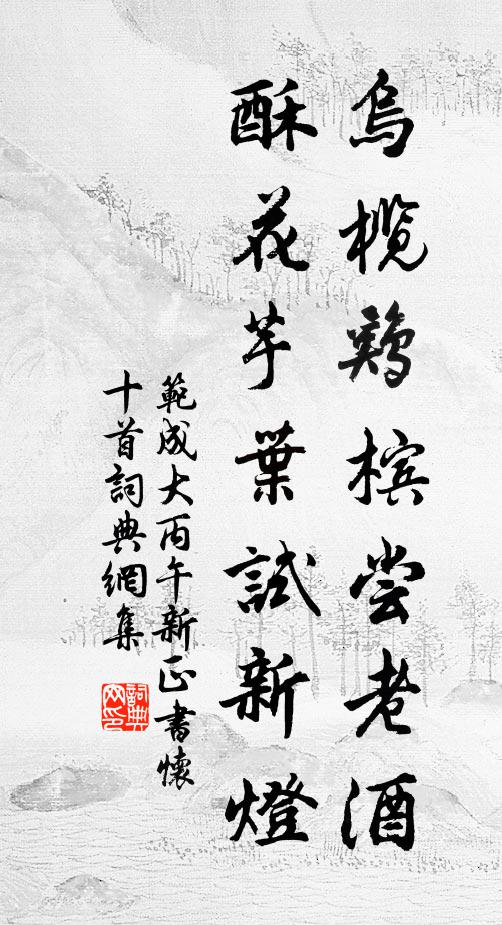 烏榄鷄槟尝老酒
酥花芋葉試新燈
範成大丙午新正書懷
十首詞典網集
詞典
网印